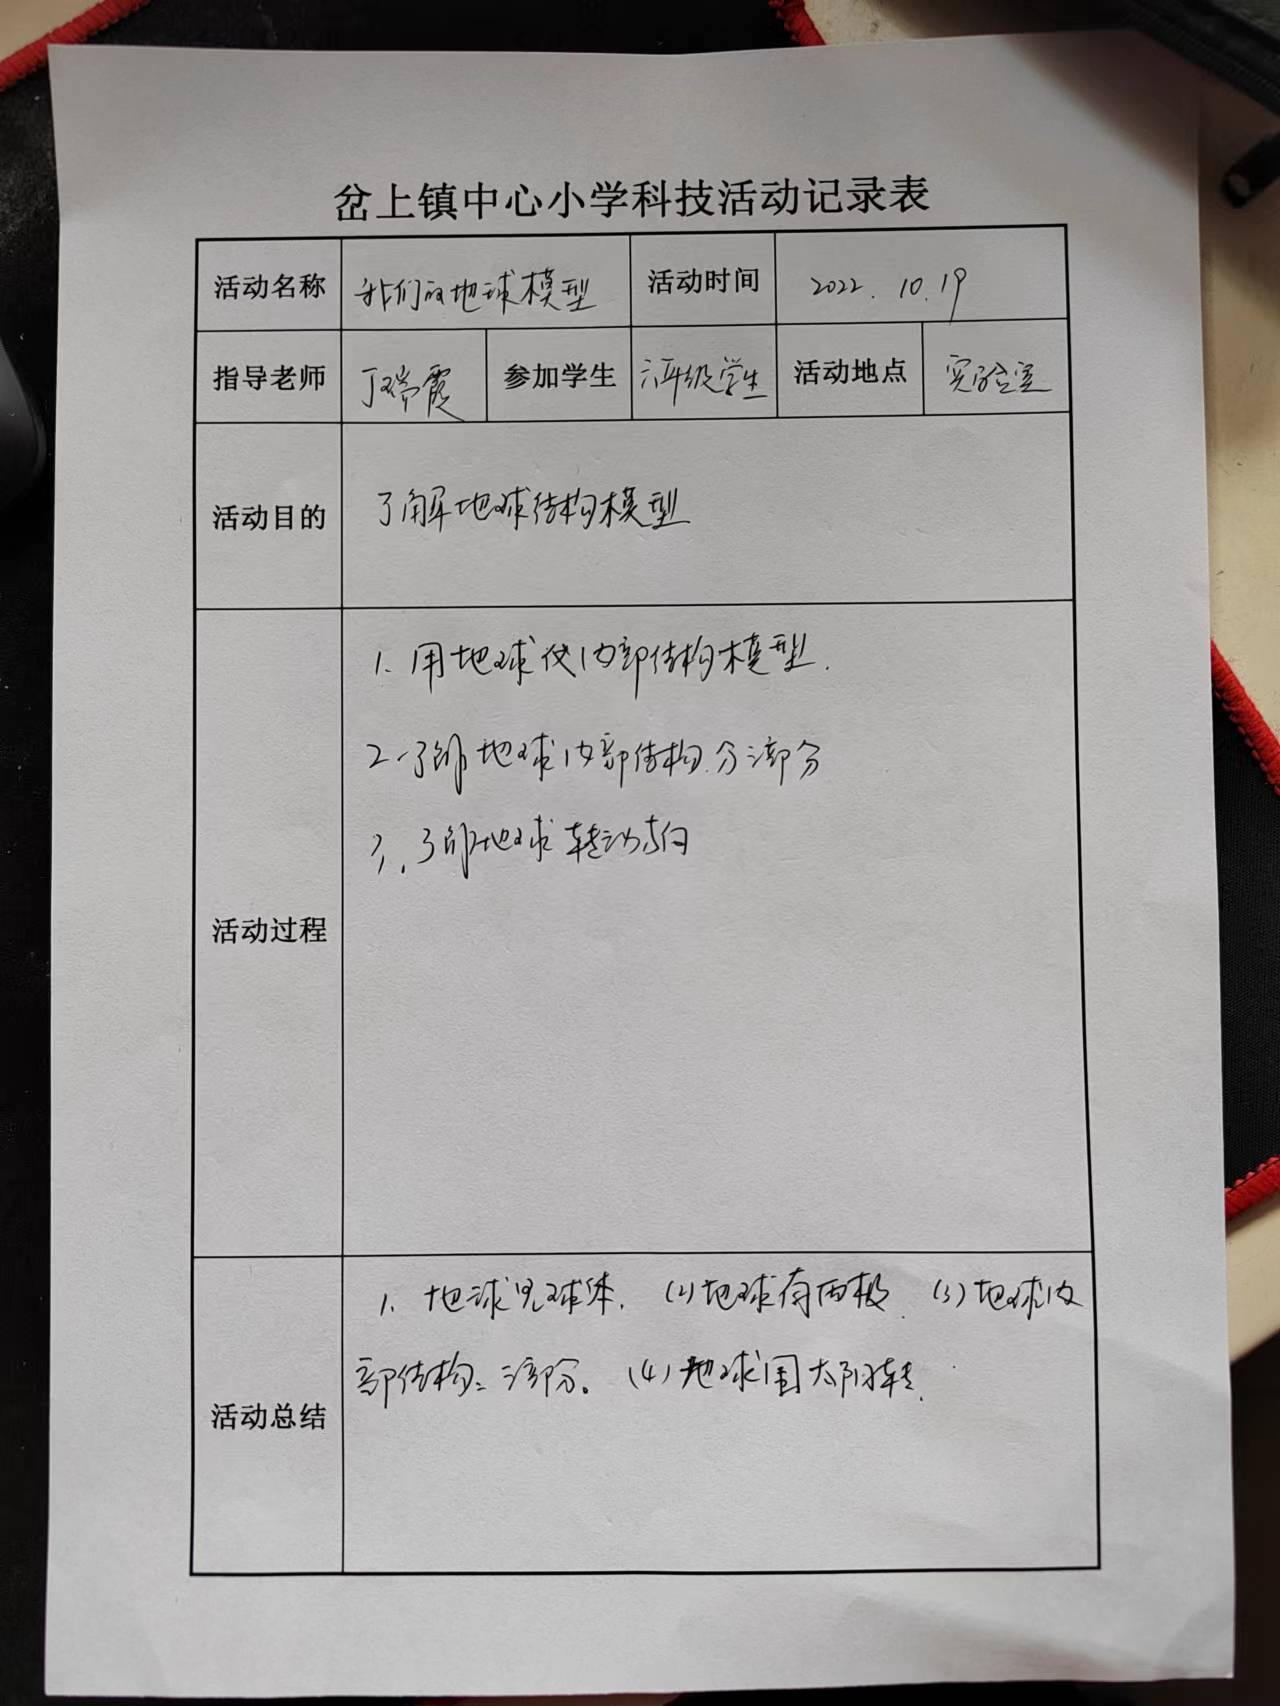 岔上镇中心小学科技活动记录表
活动名称 我们的地球模型 活动时间 2022.10.19
指导老师 丁瑞霞 参加学生 六年级学生 活动地点 实验室
活动目的 了解地球结构模型
1. 用地球仪内部结构模型.
2. 了解地球内部结构.分三部分
3. 了解地球转动方向
活动过程
1. 地球是球体. (2)地球有两极. (3)地球内
部结构:三部分。(4)地球围太阳转.
活动总结